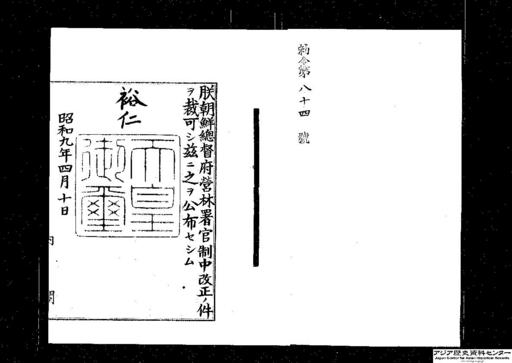 勅令第八十四號
朕朝鮮總督府營林署官制中改正ノ件
ヲ裁可シ茲ニ之ヲ公布セシム
裕仁
天皇御璽
昭和九年四月十日
内閣
アジア歴史資料センター
Japan Center for Asian Historical Records